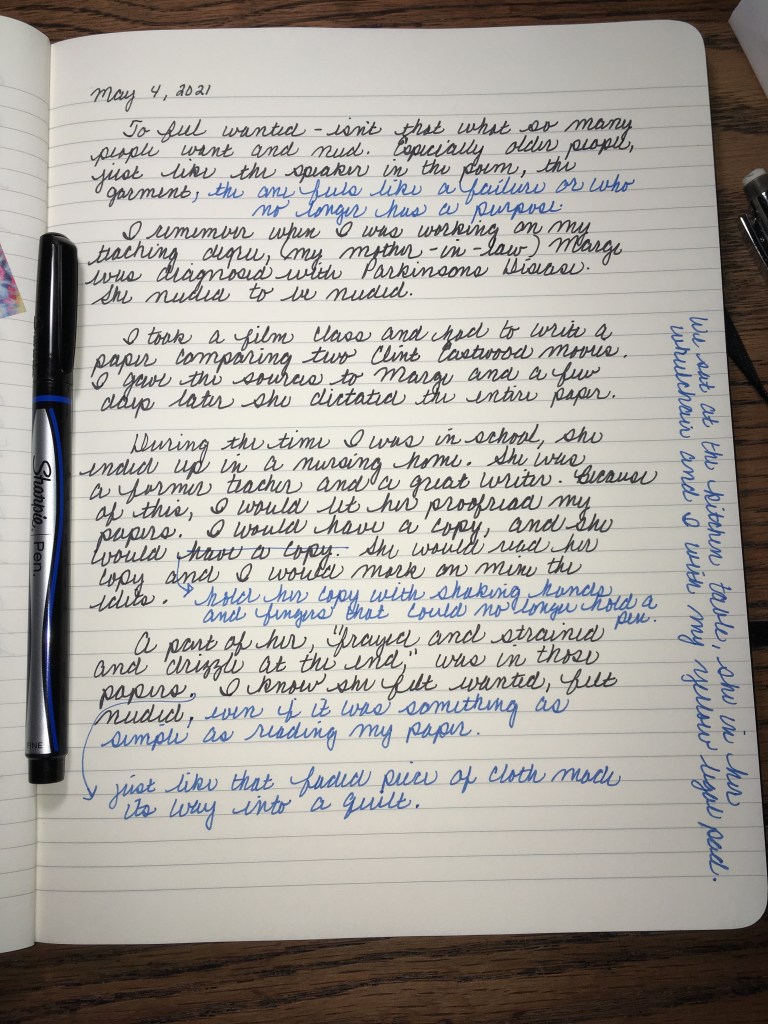 May 4, 2021
To feel wanted - isn't that what so many
people want and need. Especially older people,
just like the speaker in the poem, the
garment, the one feels like a failure or who
no longer has a purpose.
I remember when I was working on my
teaching degree, (my mother-in-law) Marge
was diagnosed with Parkinsons Disease.
She needed to be needed.
I took a film class and had to write a
paper comparing two Clint Eastwood movies.
I gave the sources to Marge and a few
days later she dictated the entire paper.
During the time I was in school, she
ended up in a nursing home. She was
a former teacher and a great writer. Because
of this, I would let her proofread my
papers. I would have a copy, and she
would have a copy. She would read her
copy and I would mark on mine the
edits. hold her copy with shaking hands
and fingers that could no longer hold a
pen.
A part of her, "frayed and strained
and drizzle at the end," was in those
papers. I know she felt wanted, felt
needed, even if it was something as
simple as reading my paper.
just like that faded piece of cloth made
its way into a quilt.
We sat at the kitchen table, she in her
wheelchair and I with my yellow legal pad.
Sharpie Pen.
FINE